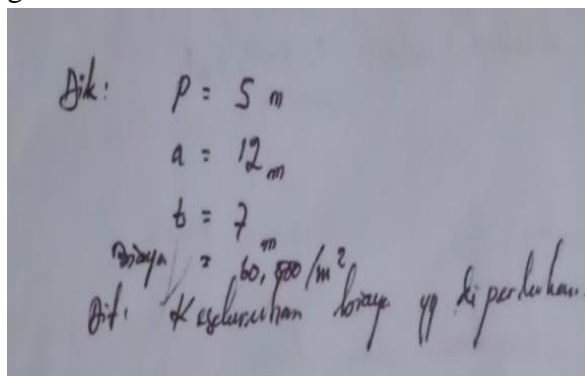 Dik: P = 5 m
a = 12 m
t = 7 m
Biaya = 60,000/m²
Dit: Keseluruhan biaya yg di perlukan.